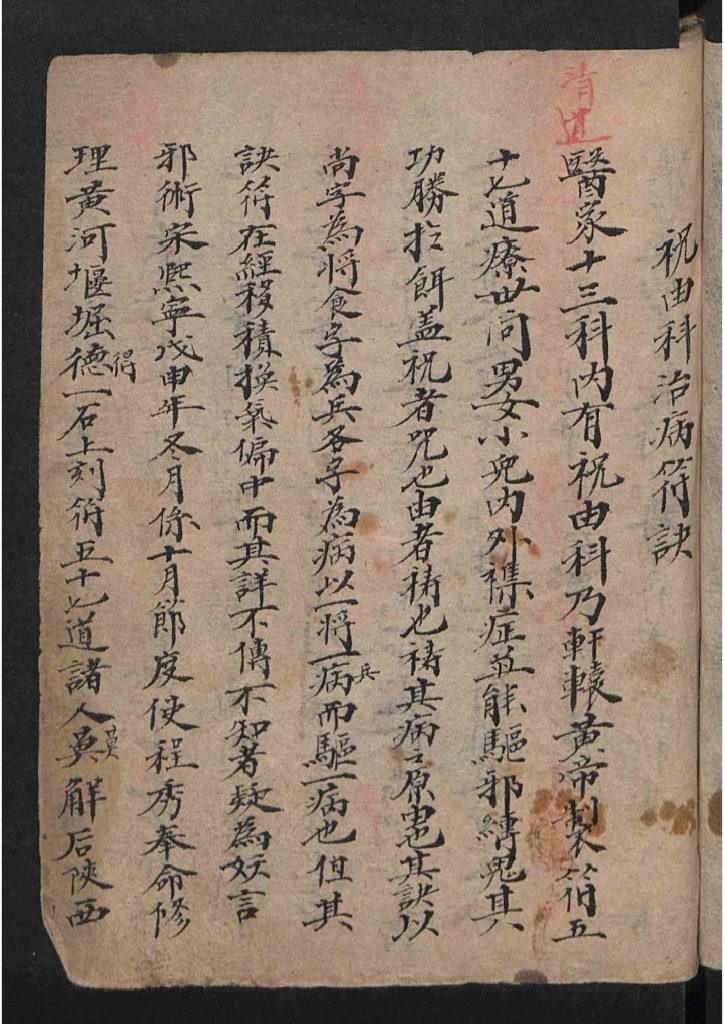 祝由科治病符訣
清道
醫家十三科内有祝由科乃軒轅黄帝製符五
十七道療世间男女小兒内外襍症並能驅邪縛鬼其
功勝扵餌盖祝者咒也由者禱也禱其病之原由也其訣以
尚字為将食字為兵各字為病以一将一病兵而驅一病也但其
訣符在經移積换氣偏中而其詳不傳不知者疑為妖言
邪術宋熙寧戊申年冬月係十月節度使程秀奉命修
理黄河堰堀德得一石上刻符五十七道諸人莫員解后陝西